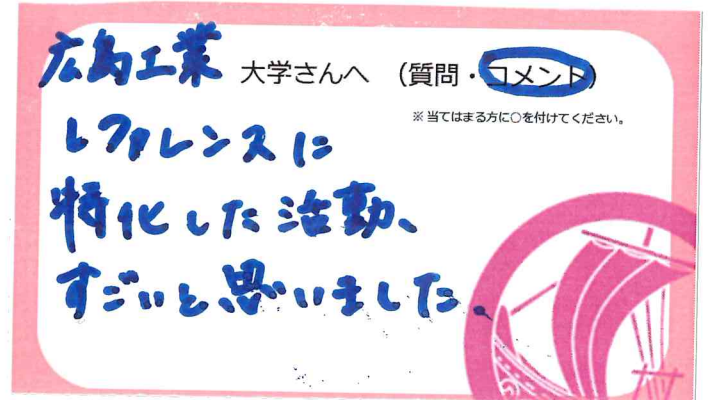 広島工業 大学さんへ （質問・コメント）
※当てはまる方に○を付けてください。
レファレンスに
特化した活動、
すごいと、思いました。